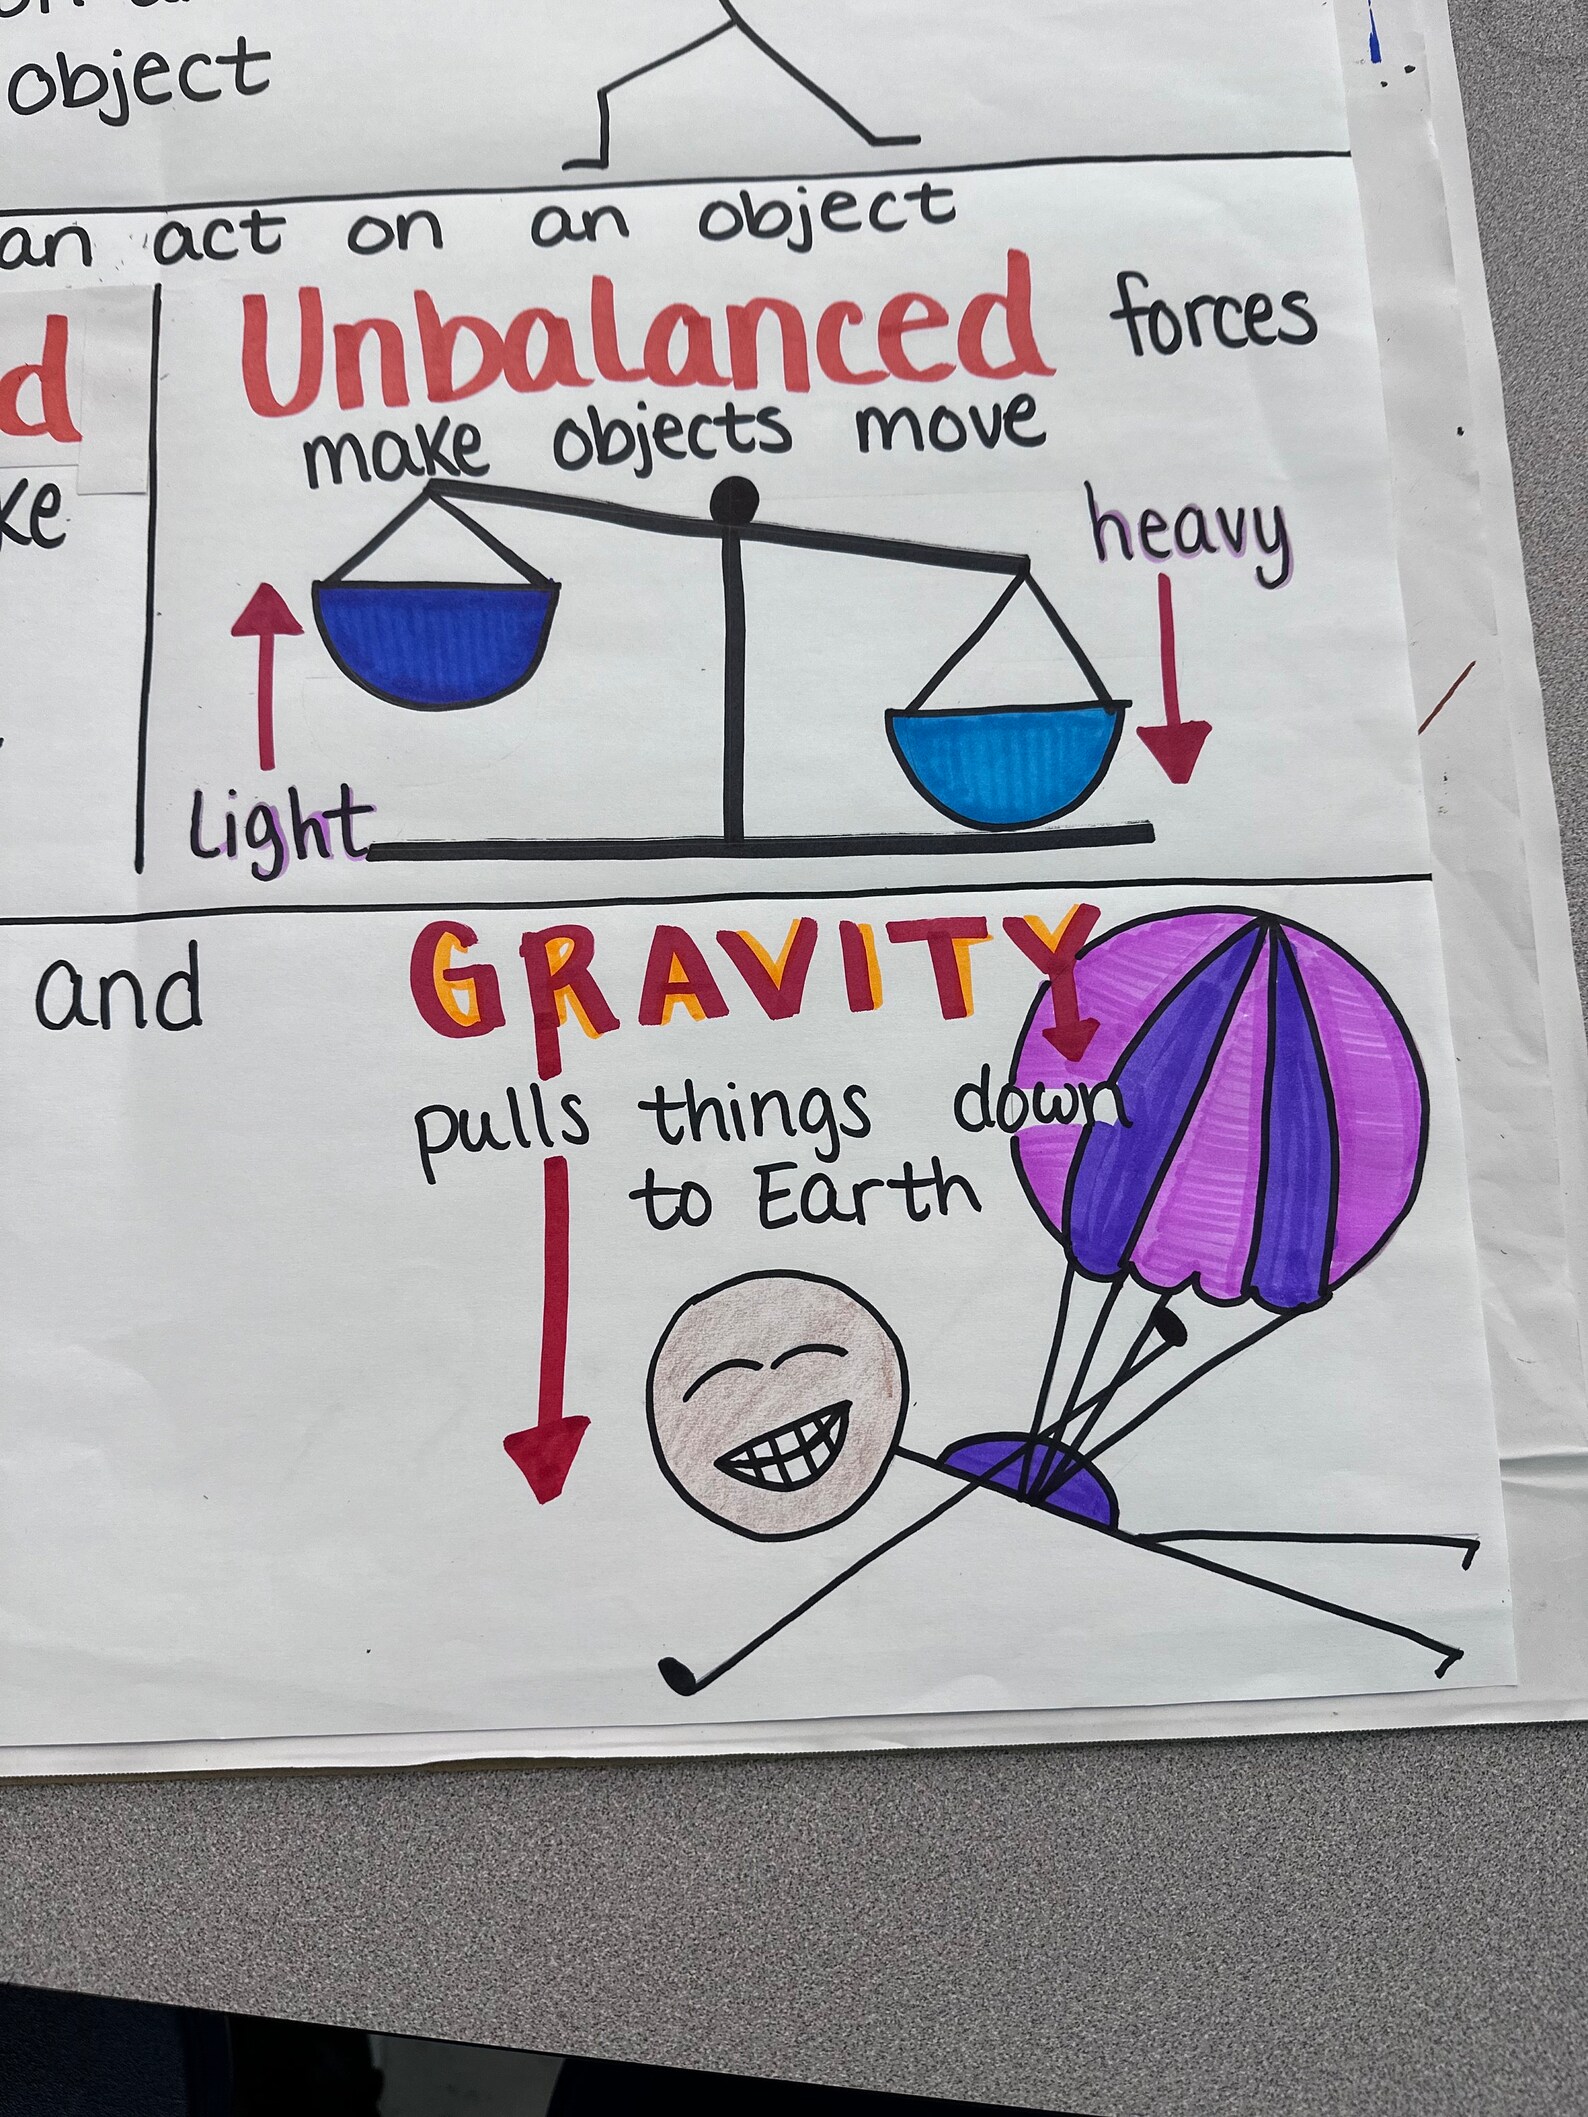 object
an act on an object
d
Unbalanced forces
ke
make objects move
heavy
Light
and
GRAVITY
pulls things down
to Earth